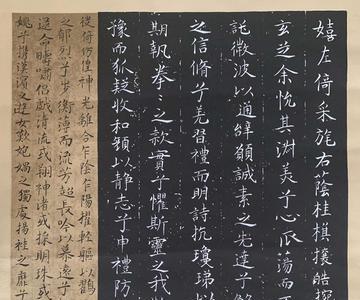 嬉左倚采旄右蔭桂旗攘皓捥
玄芝余悅其淑美兮心振蕩而
託微波以通辭願誠素之先達兮解
之信脩兮羌習禮而明詩抗瓊珶以
期執拳〻之款實兮懼斯靈之我欺
豫而狐疑收和顏以靜志兮申禮防
徙倚彷徨神光離合乍陰乍陽擢輕軀以鶴
之郁烈兮步衡薄而流芳超長吟以慕遠兮
遝命疇嘯侶戲清流或翔神渚或採明珠或
姚兮攜漢濱之遊女歎匏媧之獨處揚桂之靡兮